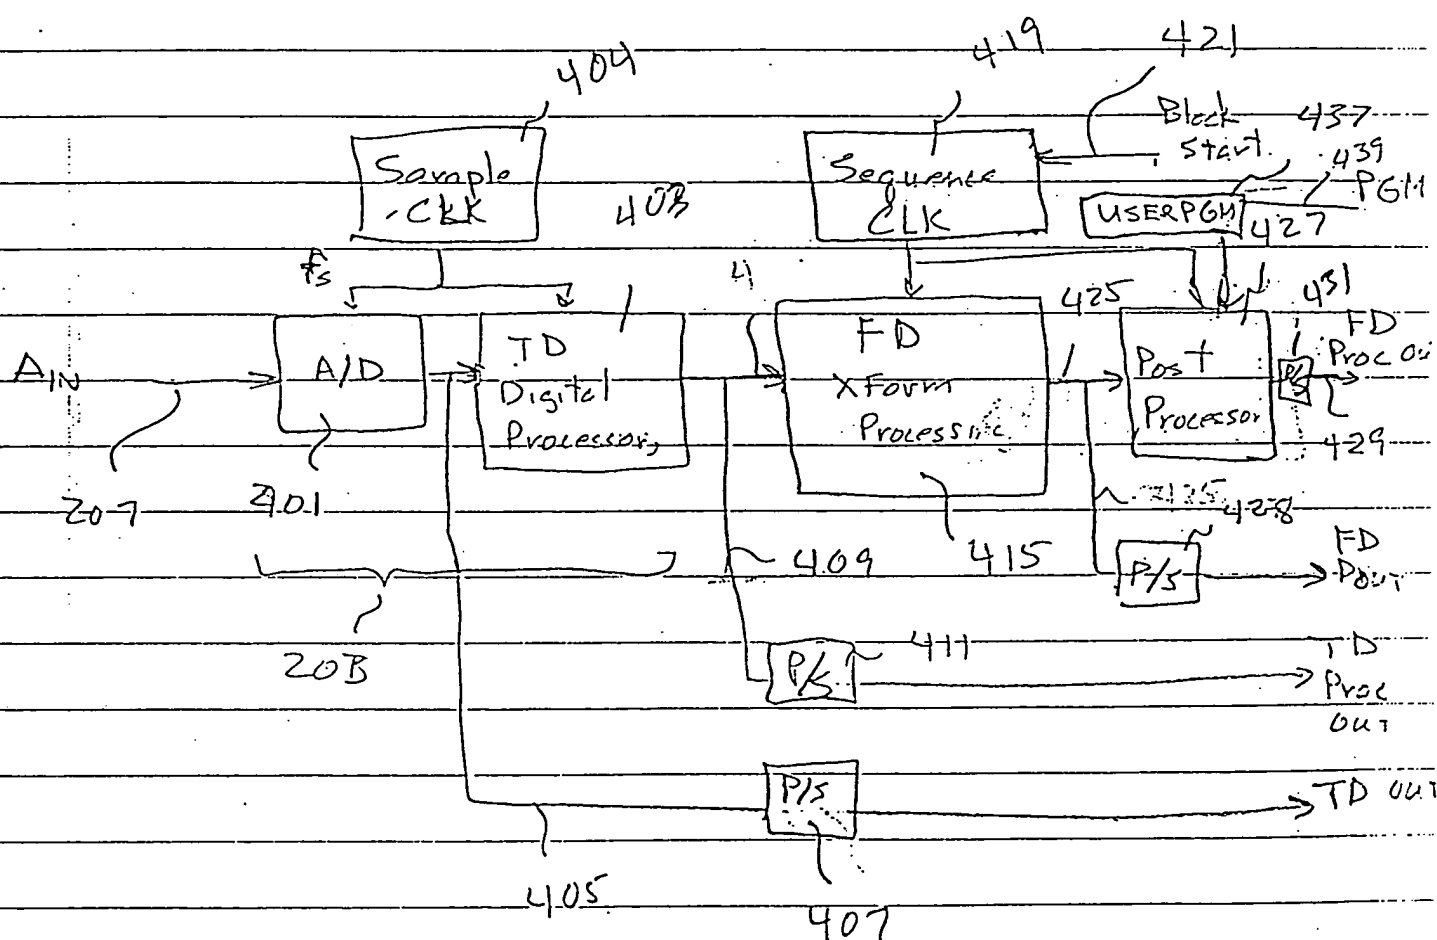 404
419
421
Block
Start
437
439
PGM
Sample
CLK
403
Sequence
CLK
USERPGM
427
fs
4
425
431
FD
Proc Ou
AIN
A/D
TD
Digital
Processor
FD
XForm
Processing
Post
Processor
P/S
429
207
401
428
409
415
P/S
FD
POUT
20B
P/S
411
TD
Proc
OUT
P/S
TD OUT
405
407